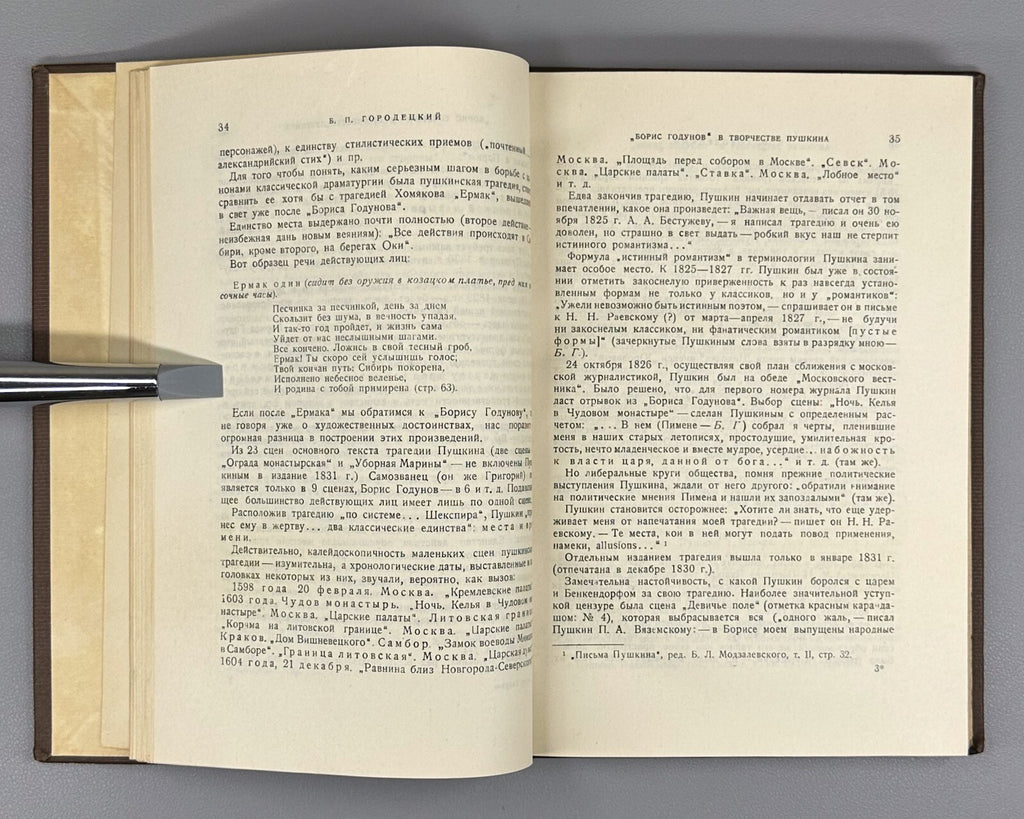 34
Б. П. ГОРОДЕЦКИЙ
персонажей), к единству стилистических приемов („почтенный
александрийский стих“) и пр.
Для того чтобы понять, каким серьезным шагом в борьбе с
нонами классической драматургии была пушкинская трагедия,
сравнить ее хотя бы с трагедией Хомякова „Ермак“,
в свет уже после „Бориса Годунова“.
Единство места выдержано почти полностью (второе
неизбежная дань новым веяниям): „Все действия происходят в
бири, кроме второго, на берегах Оки“.
Вот образец речи действующих лиц:
Ермак один (сидит без оружия в козацком платье, пред
сочные часы).
Песчинка за песчинкой, день за днем
Скользит без шума, в вечность упадая.
И так-то год пройдет, и жизнь сама
Уйдет от нас неслышными шагами.
Все кончено. Ложись в свой тесный гроб,
Ермак! Ты скоро сей услышишь голос;
Твой кончан путь: Сибирь покорена,
Исполнено небесное веленье,
И родина с тобой примирена (стр. 63).
Если после „Ермака“ мы обратимся к „Борису Годунову“,
не говоря уже о художественных достоинствах, нас
огромная разница в построении этих произведений.
Из 23 сцен основного текста трагедии Пушкина (две сцены
„Ограда монастырская“ и „Уборная Марины“ — не включены
киным в издание 1831 г.) Самозванец (он же Григорий)
является только в 9 сценах, Борис Годунов — в 6 и т. д.
щее большинство действующих лиц имеет лишь по одной сцене.
Расположив трагедию „по системе... Шекспира“, Пушкин
нес ему в жертву... два классические единства“: места и
мени.
Действительно, калейдоскопичность маленьких сцен
трагедии — изумительна, а хронологические даты, выставленные в
головках некоторых из них, звучали, вероятно, как вызов:
1598 года 20 февраля. Москва. „Кремлевские
1603 года. Чудов монастырь. „Ночь, Келья в Чудовом
настыре“. Москва. „Царские палаты“. Литовская
„Корчма на литовской границе“. Москва. „Царские
Краков. „Дом Вишневецкого“. Самбор. „Замок воеводы
в Самборе“. „Граница литовская“. Москва. „Царская
1604 года, 21 декабря. „Равнина близ Новгорода-Северского
„БОРИС ГОДУНОВ“ В ТВОРЧЕСТВЕ ПУШКИНА
35
Москва. „Площадь перед собором в Москве“. „Севск“. Мо-
сква. „Царские палаты“. „Ставка“. Москва. „Лобное место“
и т. д.
Едва закончив трагедию, Пушкин начинает отдавать отчет в том
впечатлении, какое она произведет: „Важная вещь, — писал он 30 но-
ября 1825 г. А. А. Бестужеву, — я написал трагедию и очень ею
доволен, но страшно в свет выдать — робкий вкус наш не стерпит
истинного романтизма...“
Формула „истинный романтизм“ в терминологии Пушкина зани-
мает особое место. К 1825—1827 гг. Пушкин был уже в состоя-
нии отметить закоснелую приверженность к раз навсегда устано-
вленным формам не только у классиков, но и у „романтиков“:
„Ужели невозможно быть истинным поэтом, — спрашивает он в письме
к Н. Н. Раевскому (?) от марта—апреля 1827 г., — не будучи
ни закоснелым классиком, ни фанатическим романтиком [пустые
формы]“ (зачеркнутые Пушкиным слова взяты в разрядку мною —
Б. Г.).
24 октября 1826 г., осуществляя свой план сближения с москов-
ской журналистикой, Пушкин был на обеде „Московского вест-
ника“. Было решено, что для первого номера журнала Пушкин
даст отрывок из „Бориса Годунова“. Выбор сцены: „Ночь. Келья
в Чудовом монастыре“ — сделан Пушкиным с определенным рас-
четом: „... В нем (Пимене — Б. Г) собрал я черты, пленившие
меня в наших старых летописях, простодушие, умилительная кро-
тость, нечто младенческое и вместе мудрое, усердие... набожность
к власти царя, данной от бога...“ и т. д. (там же).
Но либеральные круги общества, помня прежние политические
выступления Пушкина, ждали от него другого: „обратили внимание
на политические мнения Пимена и нашли их запоздалыми“ (там же).
Пушкин становится осторожнее: „Хотите ли знать, что еще удер-
живает меня от напечатания моей трагедии? — пишет он Н. Н. Ра-
евскому. — Те места, кои в ней могут подать повод применения,
намеки, allusions...“ ¹
Отдельным изданием трагедия вышла только в январе 1831 г.
(отпечатана в декабре 1830 г.).
Замечательна настойчивость, с какой Пушкин боролся с царем
и Бенкендорфом за свою трагедию. Наиболее значительной уступ-
кой цензуре была сцена „Девичье поле“ (отметка красным каранда-
шом: № 4), которая выбрасывается вся („одного жаль, — писал
Пушкин П. А. Вяземскому: — в Борисе моем выпущены народные
¹ „Письма Пушкина“, ред. Б. Л. Модзалевского, т. II, стр. 32.
3*